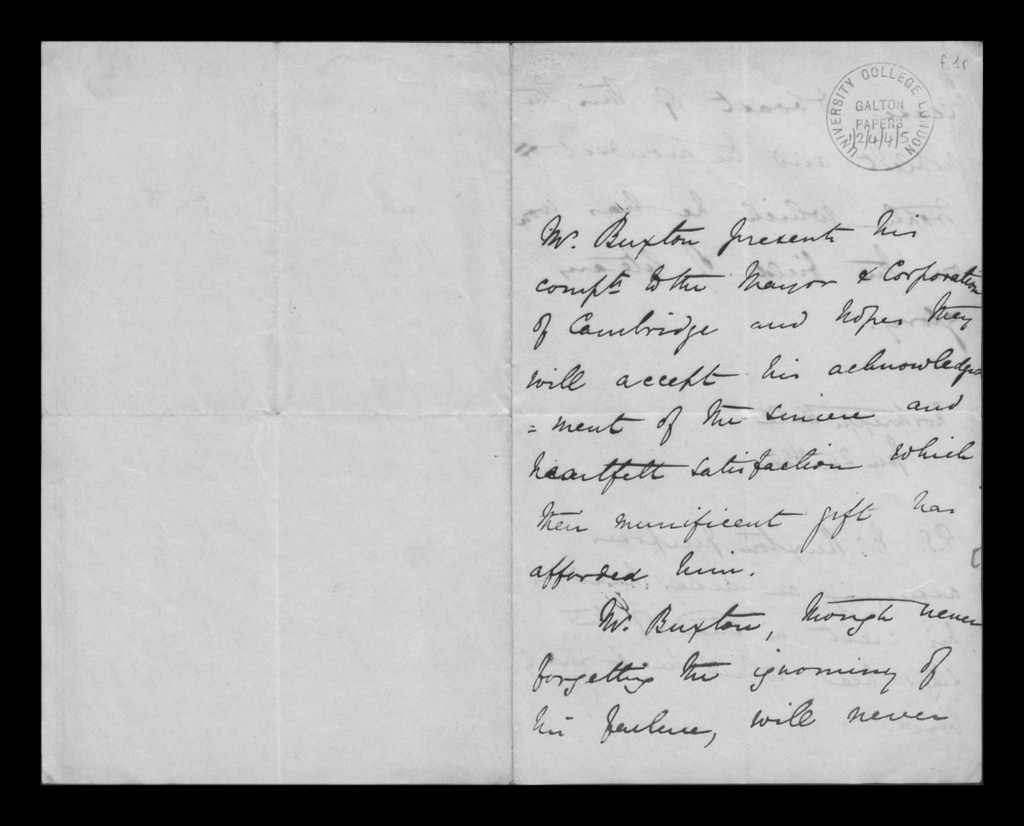 f.1r
UNIVERSITY COLLEGE LONDON
GALTON
PAPERS
1/2/4/4/5
Mr. Buxton presents his
compts to the Mayor & Corporation
of Cambridge and hopes they
will accept his acknowledge
=ment of the sincere and
heartfelt satisfaction which
their munificent gift has
afforded him.
Mr. Buxton, though never
forgetting the ignominy of
his failure, will never